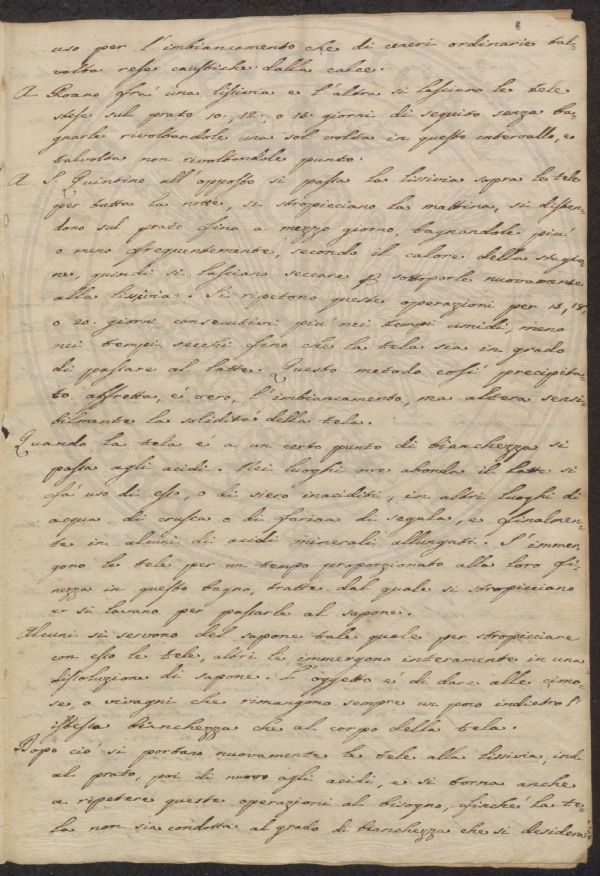 6
uso per l'imbiancamento che di ceneri ordinarie tal-
volta rese caustiche dalla calce.
A Roano frà una lissivia e l'altra si lasciano le tele
stese sul prato 10, 12. o 15 giorni di seguito senza ba-
gnarle rivoltandole una sol volta in questo intervallo, e
talvolta non rivoltandole punto.
A S. Quintino all'opposto si passa la lissivia sopra le tele
per tutta la notte, si stropicciano la mattina, si disten-
dono sul prato fino a mezzo giorno, bagnandole più
o meno frequentemente, secondo il calore della stagio-
ne, quindi si lasciano seccare p sottoporle nuovamente
alla lissivia. Si ripetono queste operazioni per 15, 18,
o 20. giorni consecutivi più nei tempi umidi, meno
nei tempi secchi fino che la tela sia in grado
di passare al latte. Questo metodo così precipita-
to affretta, é vero, l'imbiancamento, ma altera sensi-
bilmente la solidità della tela.
Quando la tela é a un certo punto di bianchezza si
passa agli acidi. Nei luoghi ove abonda il latte si
fà uso di esso, o di siero inaciditi, in altri luoghi di
acqua di crusca o di farina di segala, e finalmen-
te in alcuni di acidi minerali allungati. S'immer-
gono le tele per un tempo proporzionato alla loro fi-
nezza in questo bagno, tratte dal quale si stropicciano
e si lavano per passarle al sapone.
Alcuni si servono del sapone tale quale per stropicciare
con esso le tele, altri le immergono interamente in una
dissoluzione di sapone. L'oggetto é di dare alle cimo-
se, o vivagni che rimangono sempre un poco indietro l'
istessa bianchezza che al corpo della tela.
Dopo ciò si portano nuovamente le tele alla lissivia, indi
al prato, poi di nuovo agli acidi, e si torna anche
a ripetere queste operazioni al bisogno, finché la te-
la non sia condotta al grado di bianchezza che si desidera